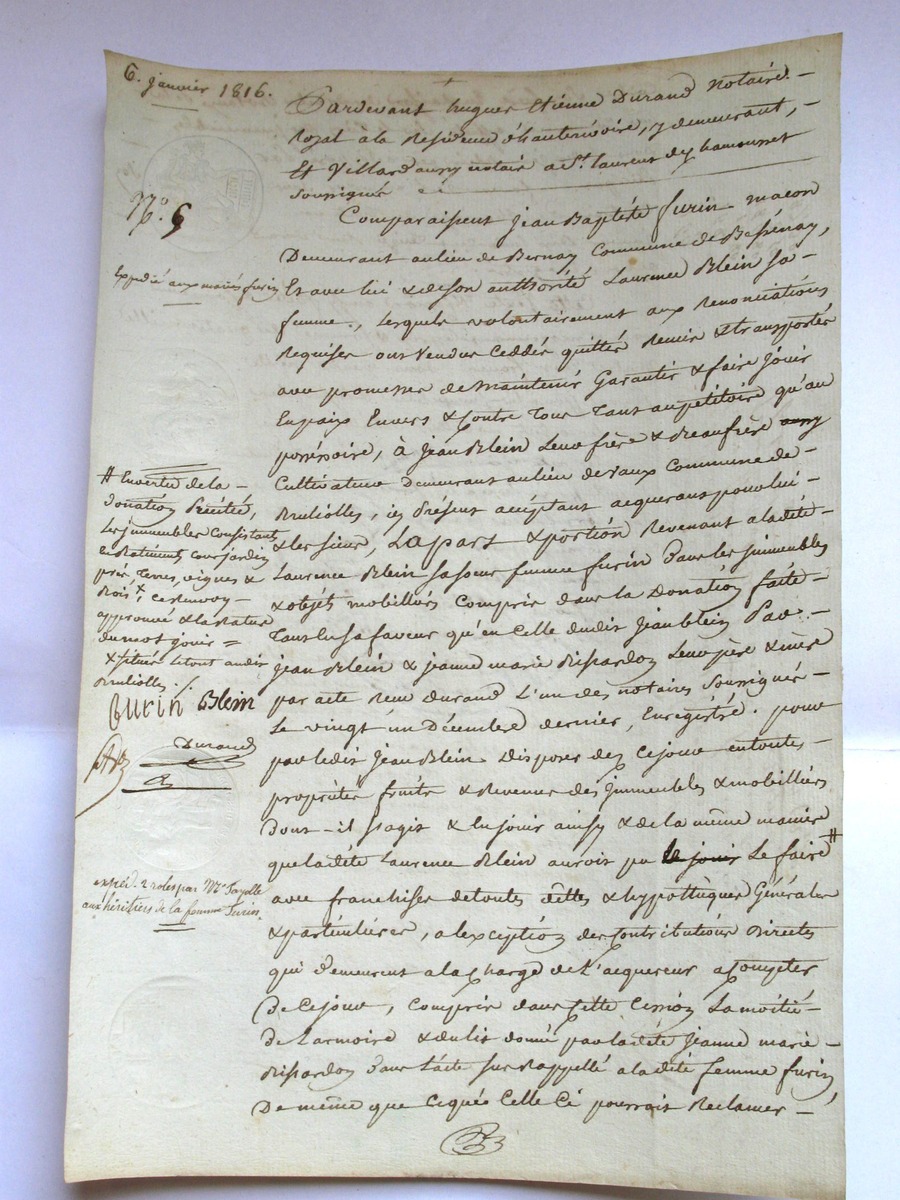 6. janvier 1816.
Pardevant hugues Etienne Durand Notaire
Royal à la Residence d'hauterivoire, y demeurant,
Et Villard aussy notaire a St. laurent de chamousset
Soussignés
N.o 6
Comparaissent Jean Baptiste furin macon
Demeurant au lieu de Bernay Commune de Bessenay,
Expedié aux mariés furin
Et avec lui & de son authorité Laurence Blein sa
femme, lesquels volontairement aux Renonciations
Requises ont Vendus Ceddés quittés Remis & transportés
avec promesses de maintenir Garantir & faire jouir
En paix Envers & Contre Tous Tant au petitoire qu'au
possessoire, à Jean Blein Leur frère & Beaufrère aussy
Cultivateur Demeurant au lieu de vaux Commune de
Brulliolles, ici Présent acceptant acquerant pour lui
& les siens, La part & portion Revenant a la dite
Laurence Blein sa soeur femme furin Dans les immeubles
& objets mobilliers Compris dans la Donation faite
Tant en sa faveur qu'en Celle dudit Jean blein Par
Jean Blein & jeanne marie Rissardon Leur père & mère
par acte Reçu Durand L'un des notaires Soussignés
Le vingt un Décembre dernier, Enregistré. pour
par ledit Jean Blein Disposer dez ce jour en toutes
proprietés fruits & Revenus des Immeubles & mobilliers
Dont il s'agit & En jouir ainsy & de la même manière
que la dite Laurence Blein auroit pu le jouir Le faire #
avec franchises de toutes dettes & hypothèques Générales
& particulières, a l'exception des Contributions Directes
qui demeurent a la Charge de l'acquereur a Compter
De Ce jour, Compris dans Cette Cession La moitié
De l'armoire & du lit donné par la dite Jeanne marie
Rissardon Dans l'acte sus Rappellé a la dite femme furin,
De même que Ce que Celle Ci pourroit Reclamer
# En vertu de la
Donation Précitée,
Les immeubles Consistant
en Batiments, Cour, jardin
prés, Terres, vignes &
Bois, x Ce renvoy
approuvé & la Rature
du mot jouir =
x situés le tout audit
Brulliolles ./.
furin Blein
Durand
expéd. 2 roles par Me Fayolle
aux héritiers de la femme Furin